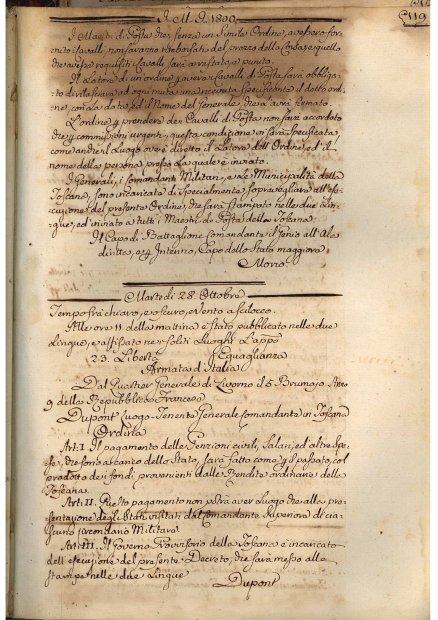 119
I.M.I. 1800
I Maestri di Posta che senza un simile Ordine, avessero for-
nito cavalli, non saranno rimborsati del prezzo della corsa, e quello
che avesse requisiti i cavalli sarà arrestato, e punito.
Il Latore di un ordine per avere i cavalli di Posta sarà obbliga-
to di rilasciare ad ogni muta una ricevuta specificante il detto ordi-
ne, con la data, ed il Nome del Generale, che l'avrà firmato.
L'ordine per prendere dei Cavalli di Posta non sarà accordato
che per commissioni urgenti, questa condizione vi sarà specificata,
come anche il Luogo ov'è diretto il Latore dell'Ordine, ed il
nome della persona presso la quale è inviato.
I Generali, i Comandanti Militari, e le Municipalità della
Toscana, sono incaricati di specialmente sopravegliare all'ese-
cuzione del presente Ordine, che sarà stampato nelle due Lin-
gue, ed inviato a tutti i Maestri di Posta della Toscana.
Il Capo di Battaglione Comandante il Genio all'Ala
diritta, e per Interino, Capo dello Stato maggiore
Morio.
Martedì 28. Ottobre
Tempo frà chiaro, e oscuro, e vento a scilocco.
Alle ore 11. della mattina è stato pubblicato nelle due
Lingue, e affissato ne' soliti Luoghi l'appo
23. Libertà Eguaglianza
Armata d'Italia
Dal Quartier Generale di Livorno il 5 Brumajo Anno
9 della Repubblica Francese
Dupont Luogo-Tenente Generale Comandante in Toscana
Ordina
Art: I. Il pagamento delle Pensioni civili, Salari, ed altre Spe-
se, che sono a carico dello Stato, sarà fatto come per il passato, col
prodotto dei fondi provenienti dalle Rendite ordinarie della
Toscana.
Art: II. Questo pagamento non potrà aver Luogo che alla pre-
sentazione degli Stati vistati dal Comandante Superiore di cia-
scuno circondario Militare.
Art: III. Il Governo Provvisorio della Toscana è incaricato
dell'esecuzione del presente Decreto, che sarà messo alla
stampa nelle due Lingue
Dupont